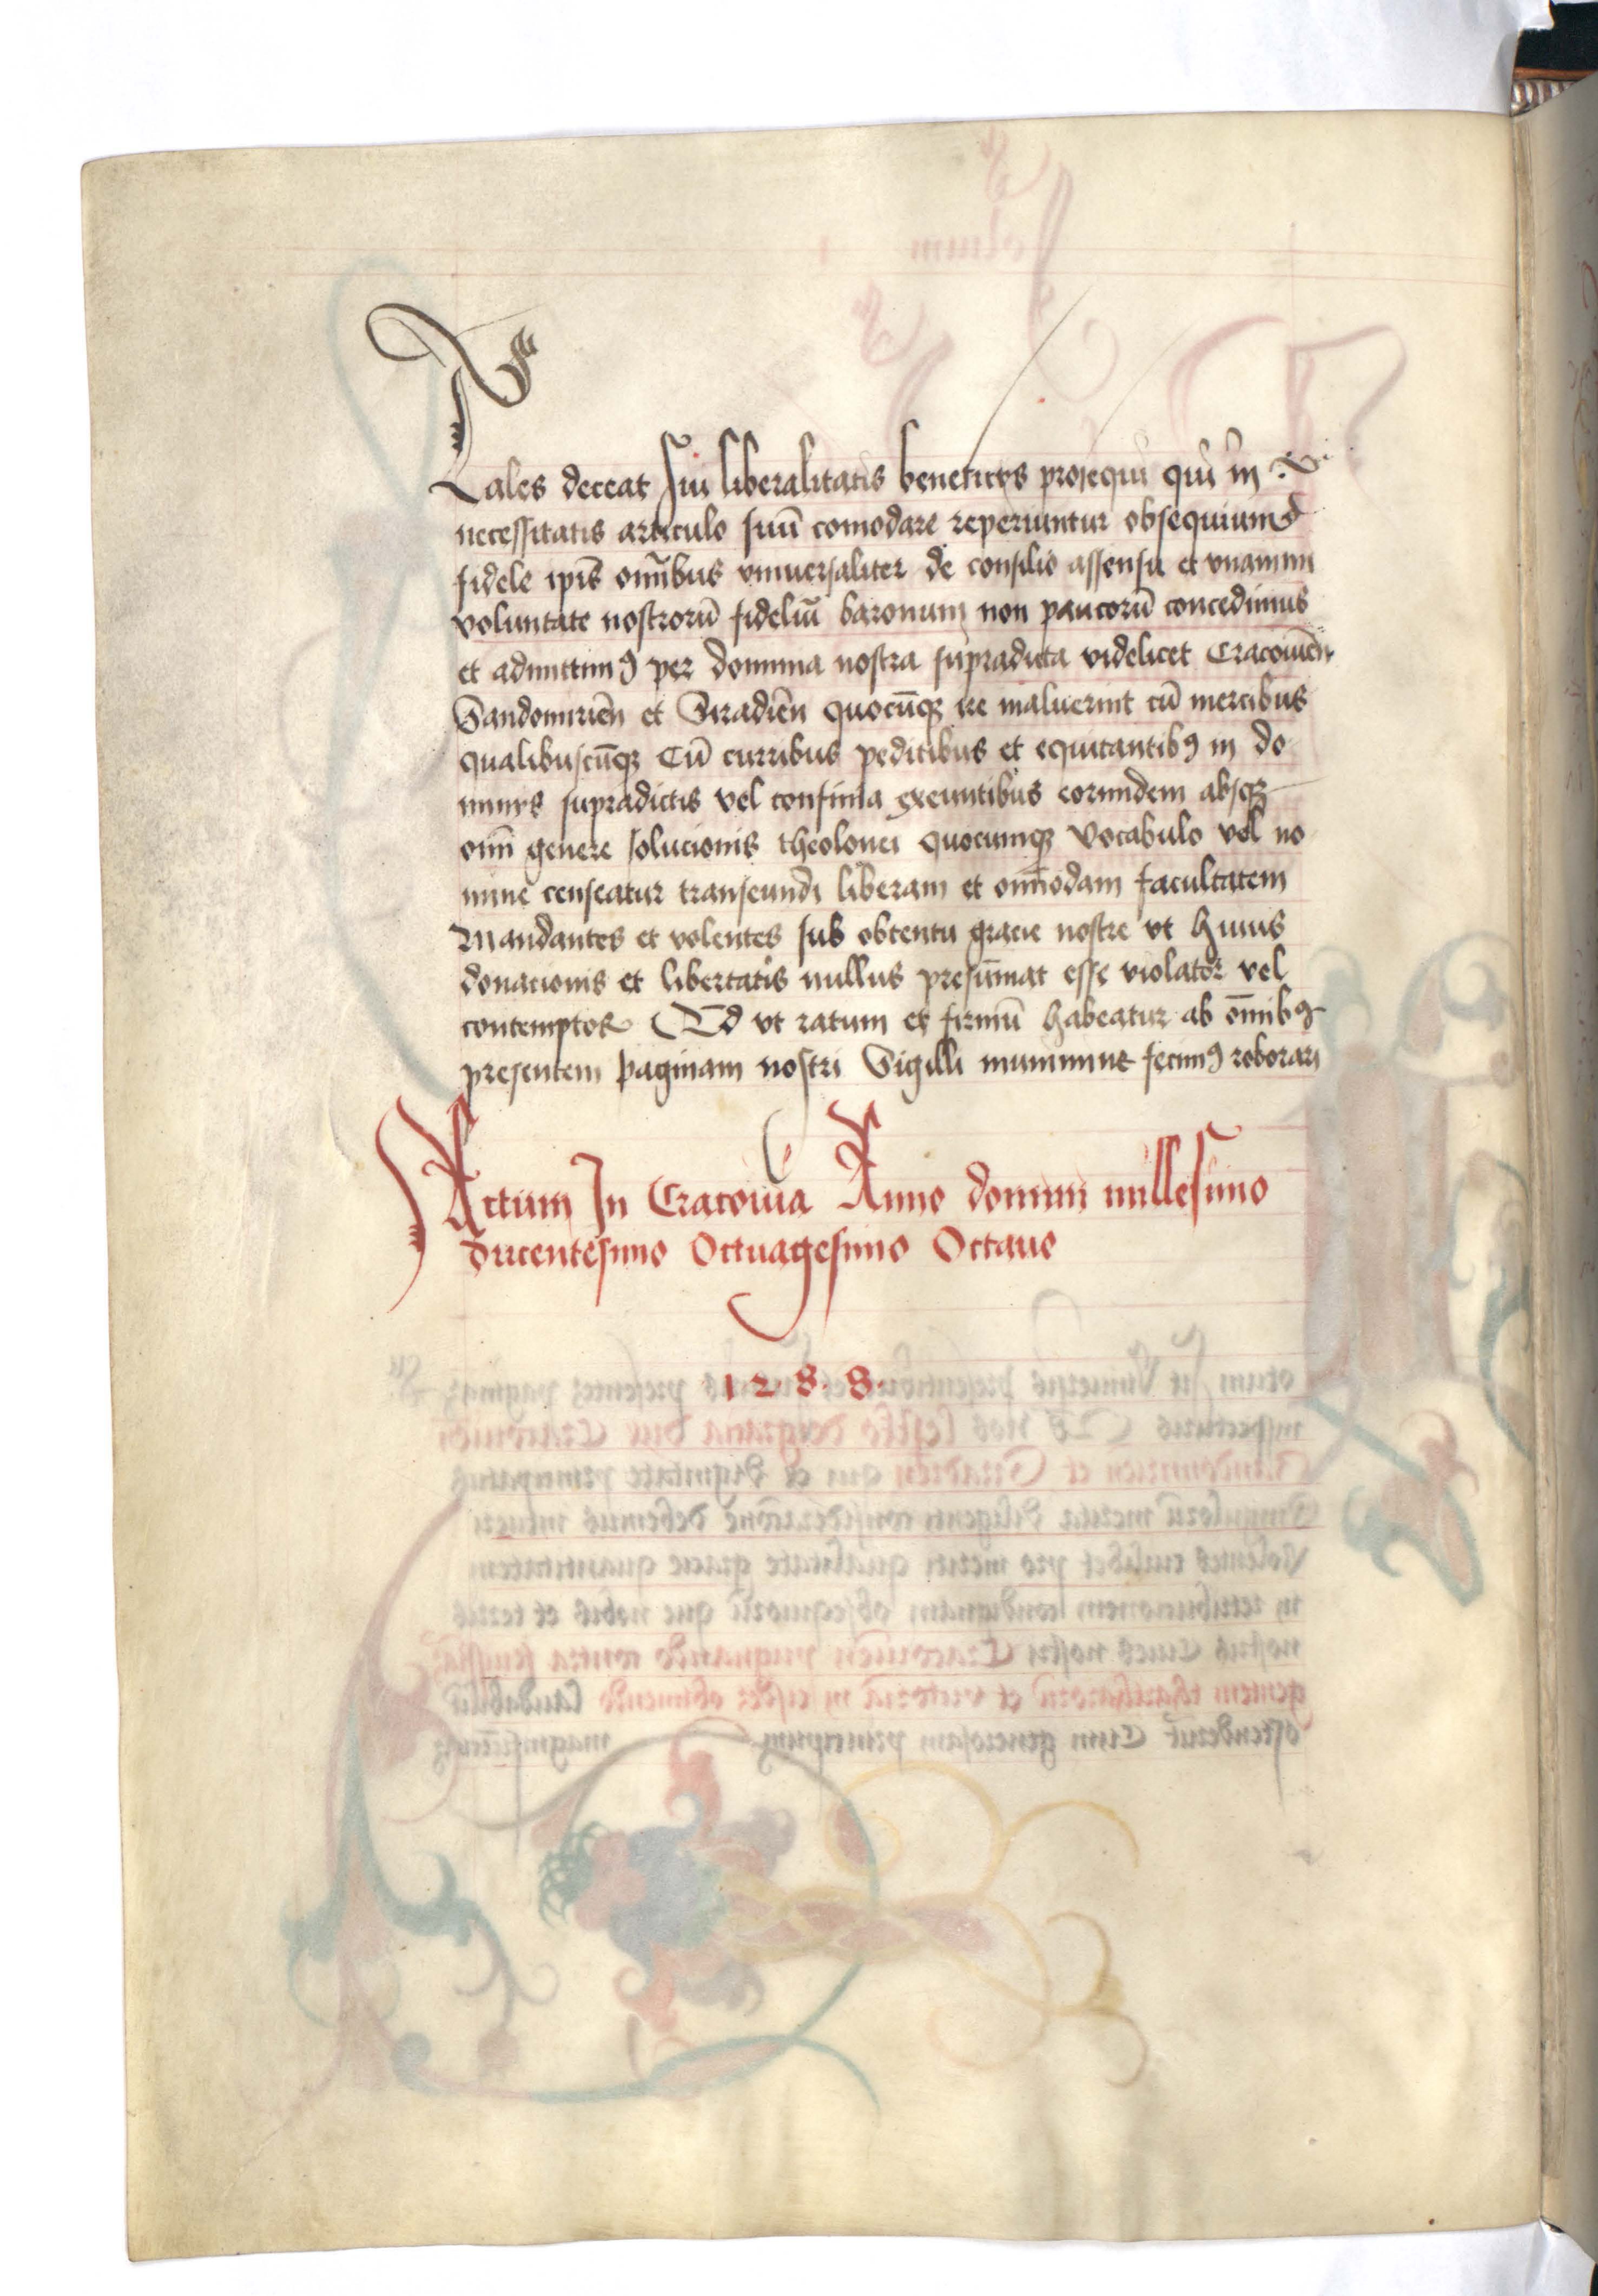 Tales deceat sui liberalitatis beneficiis prosequi qui in
necessitatis articulo suū comodare reperiuntur obsequium
fidele ipīs om̄ibus vniuersaliter de consilio assensu et vnanimi
voluntate nostrorū fideliū baronum non paucorū concedimus
et admittimꝰ per dominia nostra supradicta videlicet Cracouien̄
Sandomirien̄ et Siradien̄ quocūqꝫ ire maluerint cū mercibus
qualibuscūqꝫ Cū curribus peditibus et equitantibꝰ in do
miniis supradictis vel confinia exeuntibus eorundem absqꝫ
omī genere solucionis theolonei quocumqꝫ vocabulo vel no
mine censeatur transeundi liberam et omīodam facultatem
Mandantes et volentes sub obtentu gracie nostre vt huius
donacionis et libertatis nullus presūmat esse violator vel
contemptor Ed vt ratum et firmū habeatur ab om̄ibꝰ
presentem paginam nostri Sigilli munimine fecimꝰ roborari
Actum In Cracouia Anno domini millesimo
ducentesimo Octuagesimo Octauo
1 2 · 8 · 8 ·